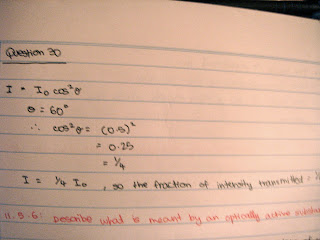 Question 30
I = I₀ cos²θ
θ = 60°
∴ cos²θ = (0.5)²
= 0.25
= 1/4
I = 1/4 I₀, so the fraction of intensity transmitted =
11.5.6: Describe what is meant by an optically active